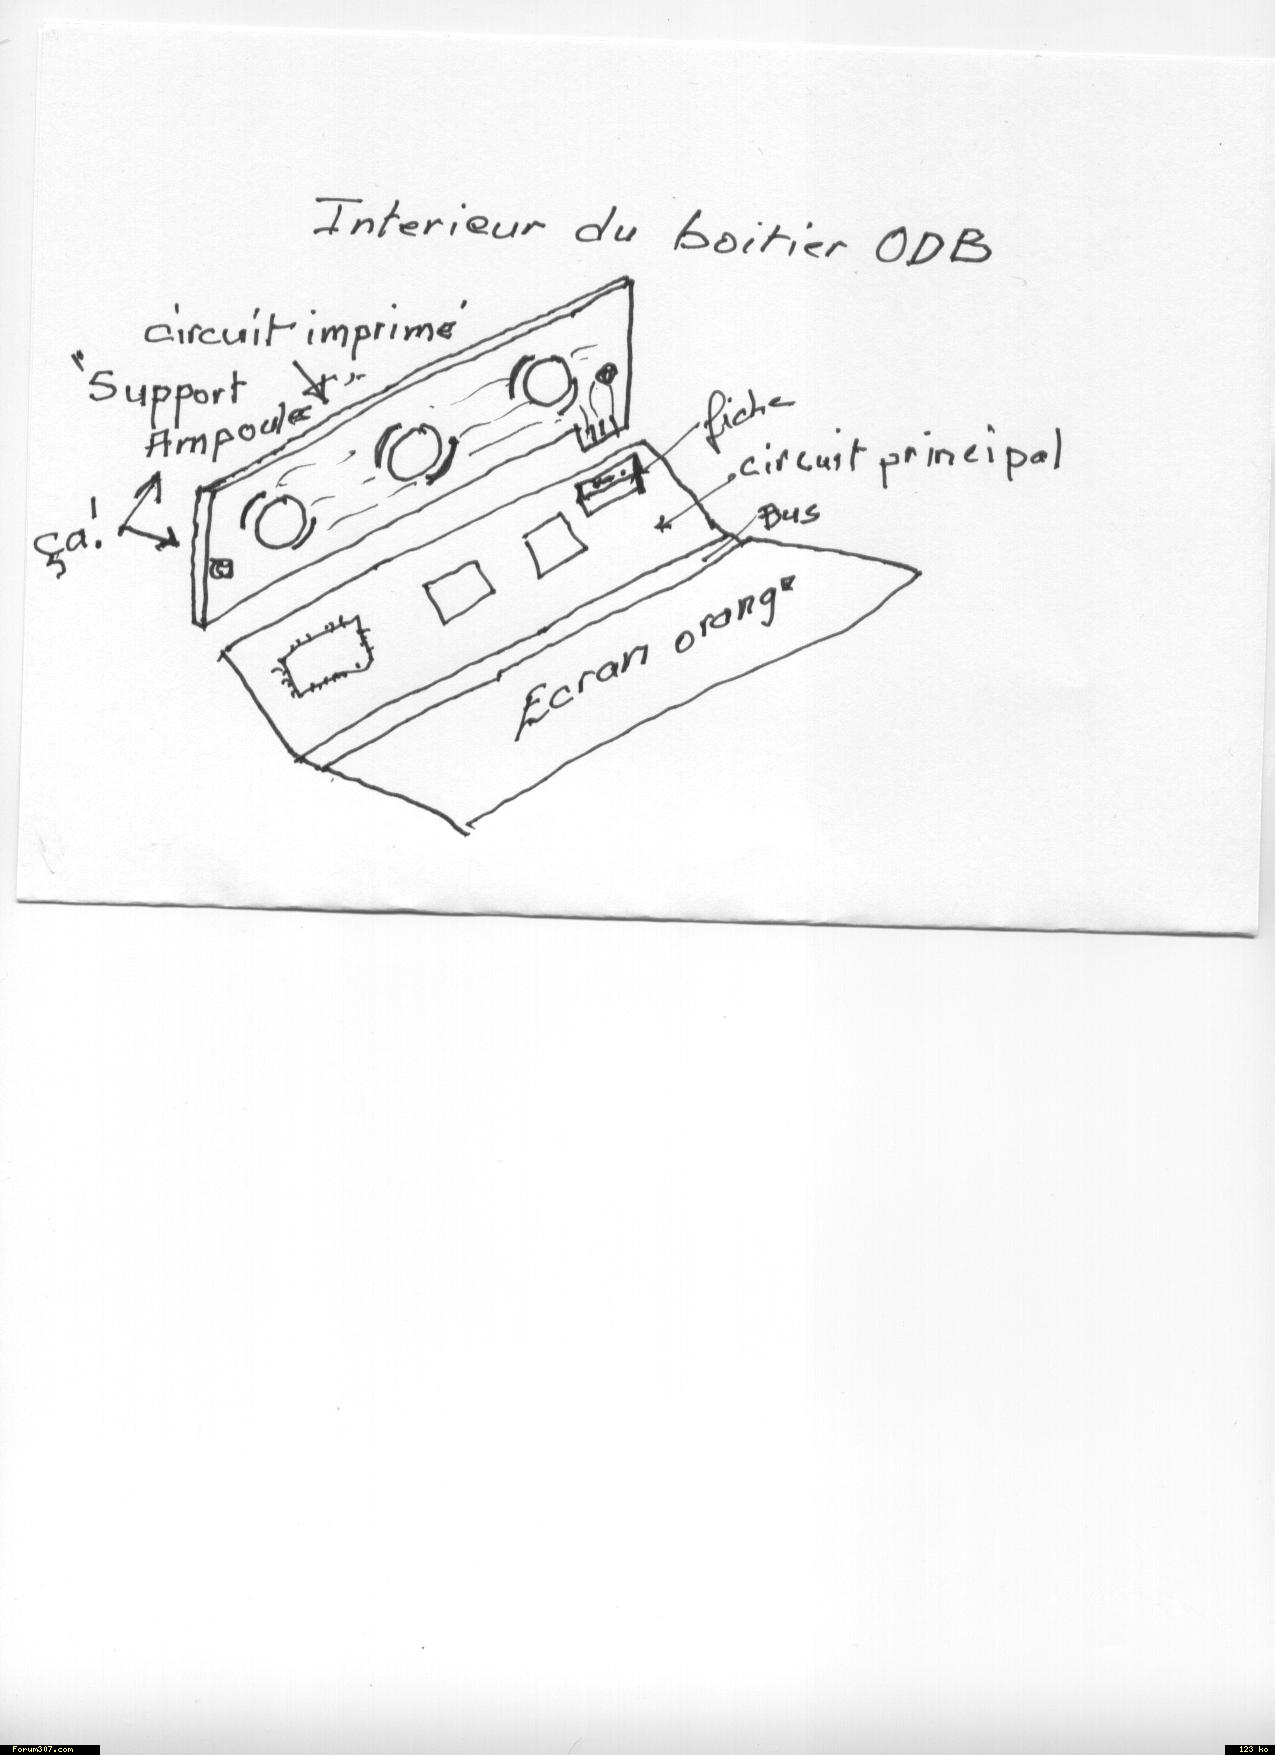 Interieur du boitier ODB
circuit imprimé
"Support
Ampoule"
ça!
fiche
circuit principal
Bus
Ecran orange
Forum307.com
123 ko